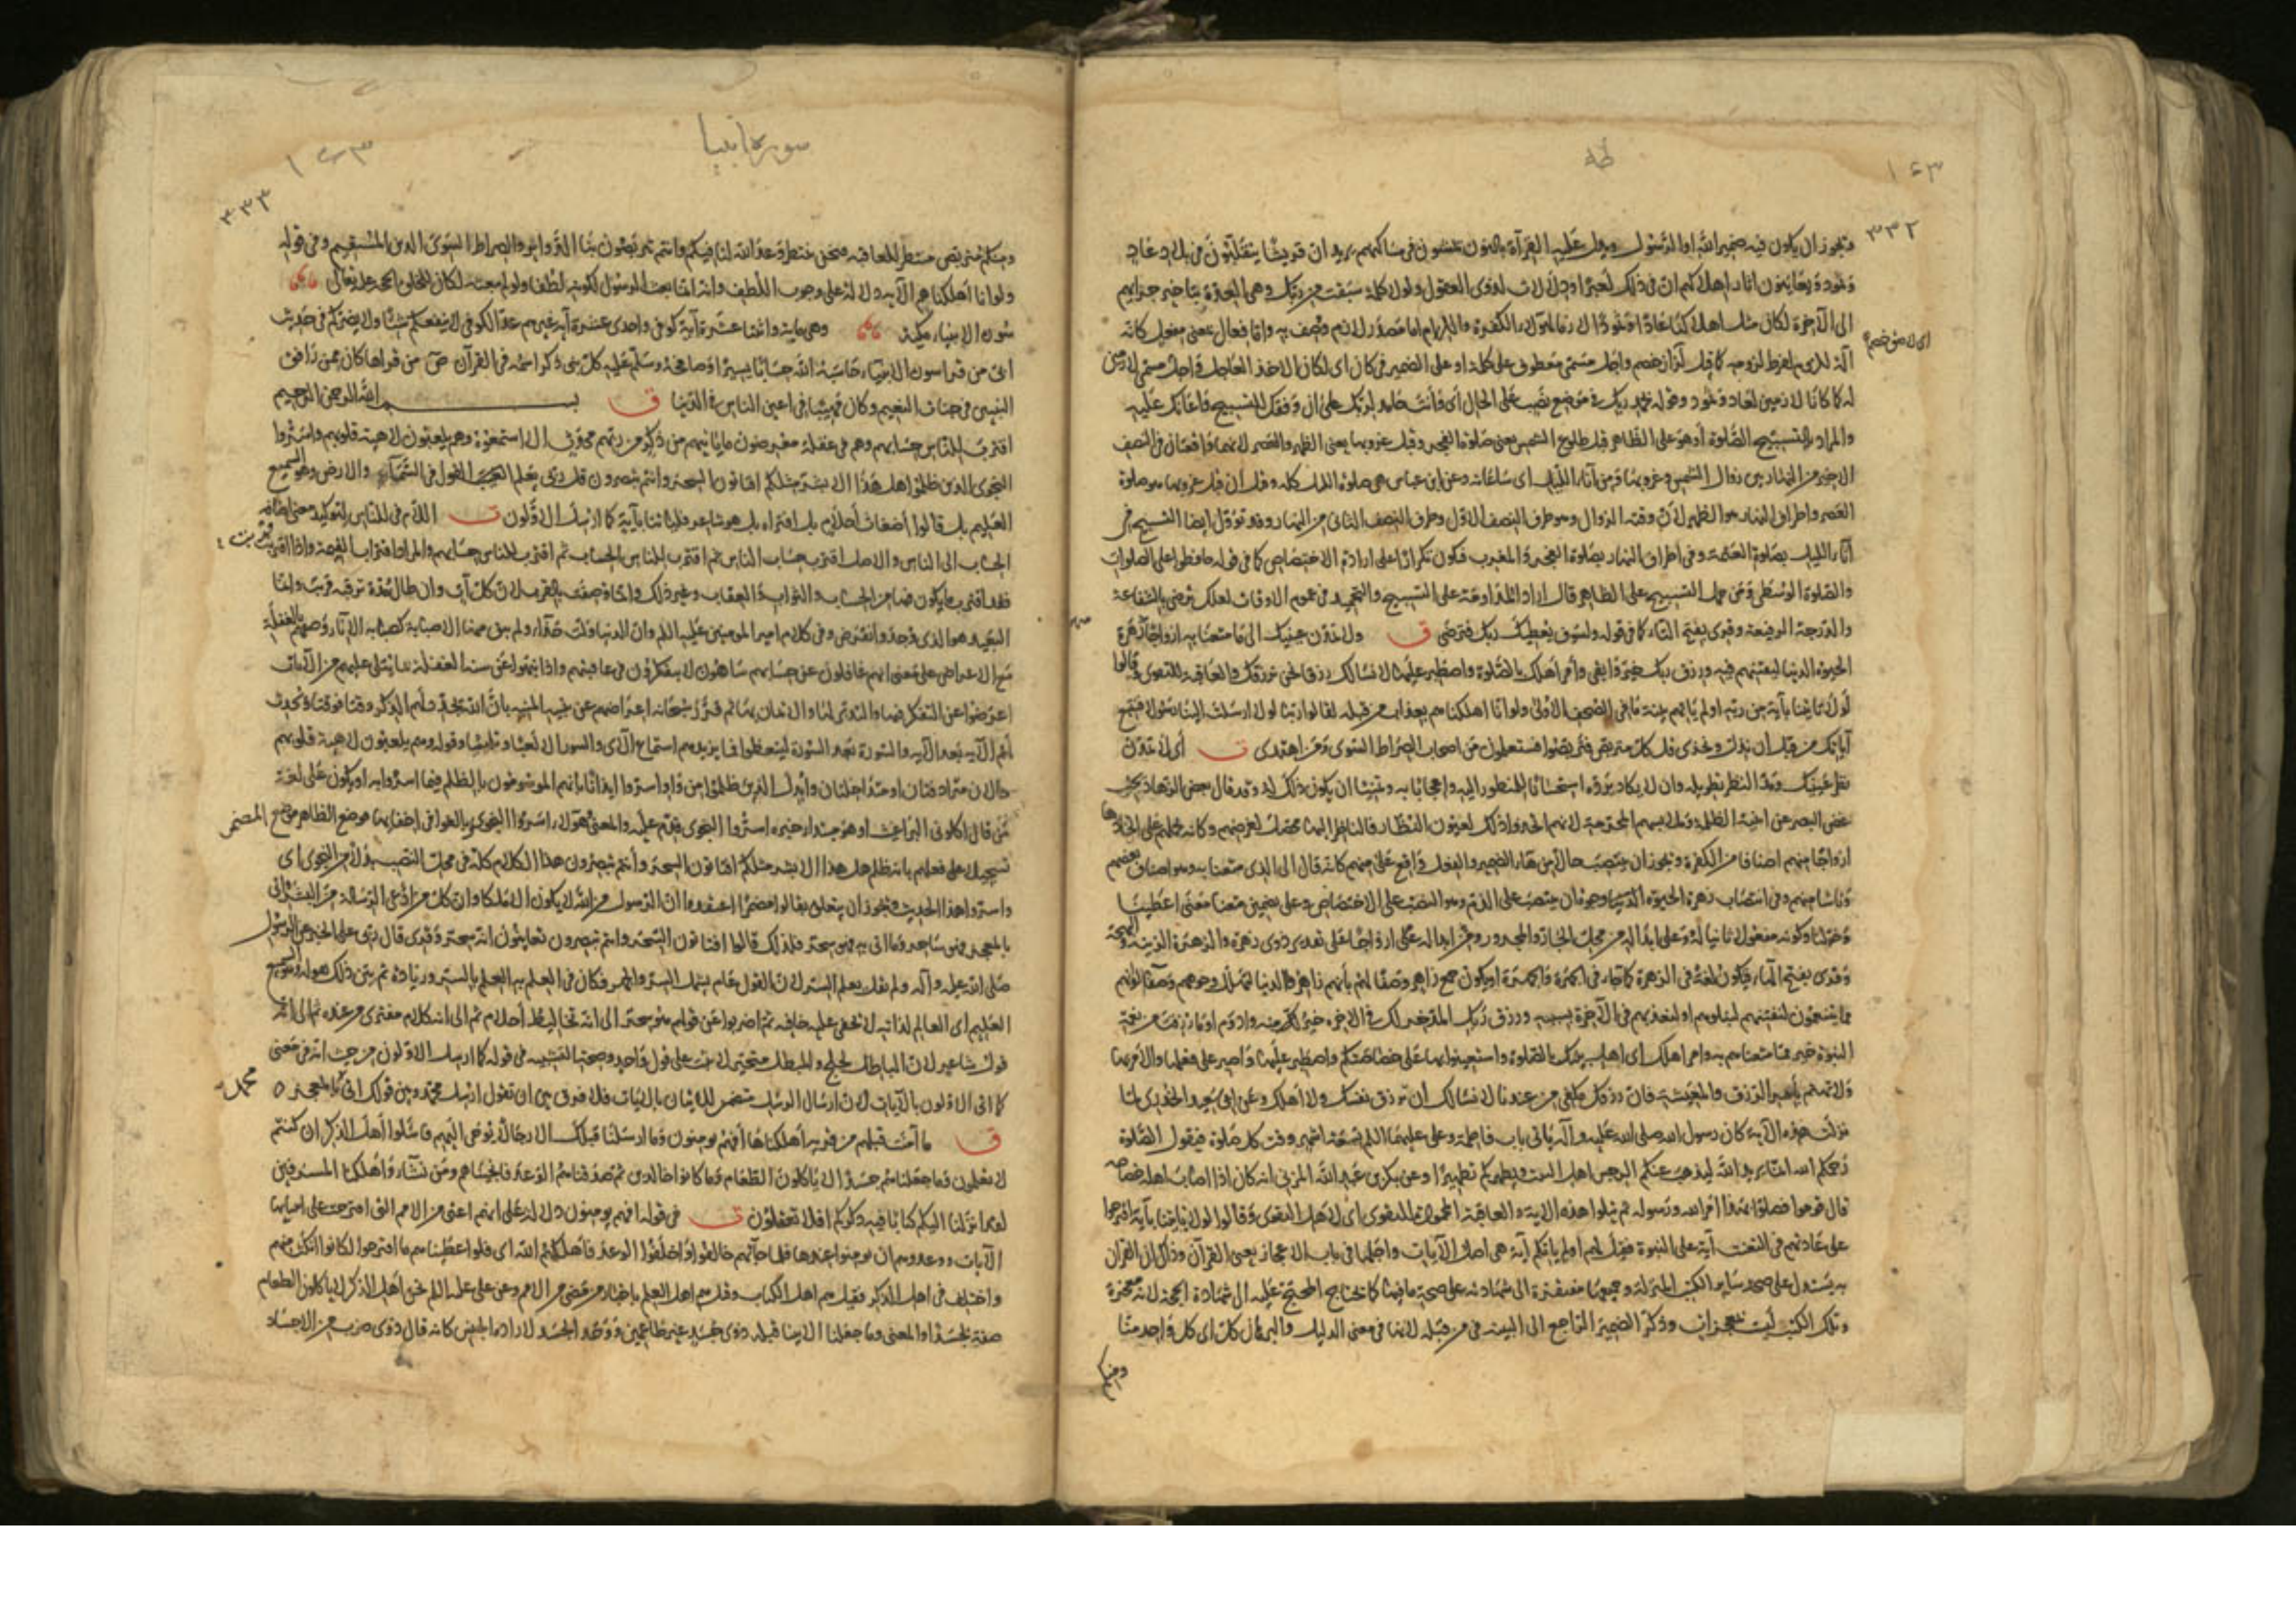 طه
١٤٣
٣٣٢
ويجوز ان يكون فيه ضمير الله او الرسول ويدل عليه القراءة بالنون يمشون في مساكنهم يريد ان قريشا يتقلبون في بلاد عاد
وثمود ويعاينون اثار اهلاكهم ان في ذلك لعبرا ودلالات لذوي العقول ولولا كلمة سبقت من ربك وهي العدة بتاخير جزائهم
الى الآخرة لكان مثل اهلاكنا عادا وثمودا لازما لهؤلاء الكفرة واللزام اما مصدر لازم وصف به واما فعال بمعنى مفعل كانه
آلة للزوم لفرط لزومه كما قيل لزاز خصم واجل مسمى معطوف على كلمة او على الضمير في كان اى لكان الاخذ العاجل واجل مسمى لازمين
له كما كانا لازمين لعاد وثمود وقوله بحمد ربك في موضع نصب على الحال أى وأنت حامد لربك على ان وفقك للتسبيح واعانك عليه
والمراد بالتسبيح الصلوة أو هو على الظاهر قبل طلوع الشمس يعنى صلوة الفجر وقبل غروبها يعنى الظهر والعصر لانهما واقعتان في النصف
الاخير من النهار بين زوال الشمس وغروبها ومن آناء الليل اى ساعاته وعن ابن عباس هى صلوة الليل كله وقيل ان قبل غروبها هو صلوة
العصر واطراف النهار هو الظهر لأن وقته الزوال وهو طرف النصف الاول وطرف النصف الثانى من النهار وقد تؤول ايضا التسبيح في
آناء الليل بصلوة العتمة وفى اطراف النهار بصلوة الفجر والمغرب فيكون تكرارا على ارادة الاختصاص كما في قوله حافظوا على الصلوات
والصلوة الوسطى ومن حمل التسبيح على الظاهر قال اراد المداومة على التسبيح والتحميد في عموم الاوقات لعلك ترضى بالشفاعة
والدرجة الرفيعة وقرئ بضم التاء كما في قوله ولسوف يعطيك ربك فترضى ق ولا تمدن عينيك الى ما متعنا به ازواجا زهرة
الحيوة الدنيا لنفتنهم فيه ورزق ربك خير وابقى وأمر اهلك بالصلوة واصطبر عليها لا نسألك رزقا نحن نرزقك والعاقبة للتقوى وقالوا
لولا يأتينا بآية من ربه اولم تأتهم بينة ما في الصحف الاولى ولو أنا اهلكناهم بعذاب من قبله لقالوا ربنا لولا ارسلت الينا رسولا فنتبع
آياتك من قبل أن نذل ونخزى قل كل متربص فتربصوا فستعلمون من اصحاب الصراط السوى ومن اهتدى ت أى لا تمدن
نظر عينيك ومد النظر تطويله وان لا يكاد يرده استحسانا للمنظور اليه واعجابا به وتمنيا ان يكون ذلك له وقد قال بعض الزهاد يجب
غض البصر عن ابنية الظلمة وملابسهم المحرمة لانهم اتخذوا ذلك لعيون النظار فالناظر اليها محصل لغرضهم وكانه يحملهم على اتخاذها
ازواجا منهم اصنافا من الكفرة ويجوز ان ينتصب حالا من هاء الضمير والفعل واقع على منهم كانه قال الى الذى متعنا به وهو اصناف بعضهم
وناسا منهم وفى انتصاب زهرة الحيوة الدنيا وجوه ان ينتصب على الذم وهو النصب على الاختصاص وعلى تضمين متعنا معنى اعطينا
وخولنا وكونه مفعولا ثانيا له وعلى ابداله من محل الجار والمجرور وعلى ابداله على ازواجا على تقدير ذوى زهرة والزهرة الزينة والبهجة
وقرئ بفتح الهاء فيكون لغة في الزهرة كما جاء في الجهرة والجهرة او يكون جمع زاهر وصفا لهم بأنهم زاهروا الدنيا لتهلل وجوههم وصفاء الوانهم
مما يتنعمون لنفتنهم لنبلوهم او لنعذبهم في الآخرة بسببه ورزق ربك المدخر لك في الآخرة خير لك منه وادوم او ما رزقت من نعمة
النبوة خير مما متعناهم به وأمر اهلك اى اهل بيتك بالصلوة واستعينوا بها على خصاصتكم واصطبر عليها واصبر على فعلها والامر بها
ولا تهتم بأمر الرزق والمعيشة فان رزقك مكفى من عندنا لا نسألك ان ترزق نفسك ولا أهلك وعن ابى سعيد الخدرى لما
نزلت هذه الآية كان رسول الله صلى الله عليه وآله يأتى باب فاطمة وعلى عليهما السلام تسعة اشهر وقت كل صلوة فيقول الصلوة
رحمكم الله انما يريد الله ليذهب عنكم الرجس اهل البيت ويطهركم تطهيرا وعن بكر بن عبد الله المزنى انه كان اذا اصاب اهله خصاصة
قال قوموا فصلوا بهذا امر الله ورسوله ثم يتلوا هذه الاية والعاقبة المحمودة للتقوى اى لاهل التقوى وقالوا لولا يأتينا بآية اقترحوا
على عادتهم في التعنت آية على النبوة فقيل لهم اولم يأتكم آية هى اصل الآيات واجلها في باب الاعجاز يعنى القرآن وذاك ان القرآن
به يستدل على صحة سائر الكتب المنزلة وجميعها مفتقرة الى شهادته على صحة ما فيها كما يحتاج المحتج عليه الى شهادة الحجة لانه معجزة
وتلك الكتب ليست معجزات وذكر الضمير الراجع الى البينة في من قبله لانها في معنى الدليل والبرهان كل اى كل واحد منا
ومنكم
سورة انبيا
١٤٣
٣٣٣
ومنكم متربص منتظر للعاقبة فنحن ننتظر وعد الله لنا فيكم وانتم تتربصون بنا الدوائر والصراط السوى الدين المستقيم وفى قوله
ولو انا أهلكناهم الآية دلالة على وجوب اللطف وانه انما بعث الرسول لكونه لطفا ولو لم يبعثه لكان للخلق الحجة عليه تعالى
سورة الانبياء مكية وهى ماية واثنتا عشرة آية كوفى واحدى عشرة آية غيرهم عد الكوفى لا ينفعكم شيئا ولا يضركم في حديث
ابى من قرا سورة الانبياء حاسبه الله حسابا يسيرا وصافحه وسلم عليه كل نبى ذكر اسمه في القرآن ص من قراها كان ممن رافق
النبيين في جنات النعيم وكان مهيبا في اعين الناس في الدنيا ق بسم الله الرحمن الرحيم
اقترب للناس حسابهم وهم في غفلة معرضون ما يأتيهم من ذكر من ربهم محدث الا استمعوه وهم يلعبون لاهية قلوبهم واسروا
النجوى الذين ظلموا هل هذا الا بشر مثلكم افتأتون السحر وانتم تبصرون قل ربى يعلم القول في السماء والارض وهو السميع
العليم بل قالوا أضغاث أحلام بل افتراه بل هو شاعر فليأتنا بآية كما ارسل الاولون ت اللام في للناس لتوكيد معنى اضافة
الحساب الى الناس والاصل اقترب حساب الناس ثم اقترب للناس الحساب ثم اقترب للناس حسابهم والمراد اقتراب القيمة واذا اقتربت
فقد اقترب ما يكون فيها من الحساب والثواب والعقاب وغير ذلك وانما وصفت بالقرب لان كل آت وان طال مدة ترقبه قريب وانما
البعيد هو الذى وجد وانقرض وفى كلام امير المومنين عليه السلم وان الدنيا ولت حذاء ولم يبق منها الا صبابة كصبابة الاناء وصفهم بالغفلة
مع الاعراض على معنى انهم غافلون عن حسابهم ساهون لا يتفكرون في عاقبتهم واذا نبهوا عن سنة الغفلة بما يتلى عليهم من الآيات
اعرضوا عن التفكر فيها والتدبر لها والايمان بها ثم قرر سبحانه اعراضهم عن تنبيه المنبه بأن الله يجدد لهم الذكر وقتا فوقتا ويحدث
لهم الآية بعد الآية والسورة بعد السورة ليتعظوا فما يزيدهم استماع الآى والسور الا لعبا وتلهيا وقوله وهم يلعبون لاهية قلوبهم
حالان مترادفتان او متداخلتان وابدل الذين ظلموا من واو اسروا ايذانا بانهم الموسومون بالظلم فيما اسروا به او يكون على لغة
من قال اكلونى البراغيث او هو مبتدا وخبره اسروا النجوى قدم عليه والمعنى هؤلاء اسروا النجوى بالغوا في اخفائها فوضع الظاهر موضع المضمر
تسجيلا على فعلهم بانه ظلم هل هذا الا بشر مثلكم افتأتون السحر وأنتم تبصرون هذا الكلام كله في محل النصب بدلا من النجوى اى
واسروا هذا الحديث ويجوز ان يتعلق بقالوا مضمرا اعتقدوا ان الرسول من الله لا يكون الا ملكا وان كل من ادعى الرسالة من البشر واتى
بالمعجزة فهو ساحر وما اتى به فهو سحر فلذلك قالوا افتاتون السحر وانتم تبصرون تعاينون انه سحر وقرئ قال ربى على الخبر عن الرسول
صلى الله عليه وآله ولم يقل يعلم السر لان القول عام يشمل السر والجهر فكان في العلم به العلم بالسر وزيادة ثم بين ذلك بقوله وهو السميع
العليم اى العالم لذاته لا تخفى عليه خافية ثم اضربوا عن قولهم هو سحر الى انه تخاليط أحلام ثم الى انه كلام مفترى من عنده ثم الى انه
قول شاعر لان الباطل لجلج والمبطل متحير لا يثبت على قول واحد وصحة التشبيه في قوله كما ارسل الاولون من حيث انه في معنى
كما اتى الاولون بالآيات لان ارسال الرسل متضمن للاتيان بالآيات فلا فرق بين ان تقول ارسل محمد وبين قولك اتى محمد بالمعجزة
ق ما آمنت قبلهم من قرية أهلكناها أفهم يومنون وما ارسلنا قبلك الا رجالا نوحى اليهم فاسئلوا أهل الذكر ان كنتم
لا تعلمون وما جعلناهم جسدا لا ياكلون الطعام وما كانوا خالدين ثم صدقناهم الوعد فانجيناهم ومن نشاء واهلكنا المسرفين
لقد انزلنا اليكم كتابا فيه ذكركم افلا تعقلون ت في قوله افهم يومنون دلالة على انهم اعتى من الامم التى اقترحت على انبيائها
الآيات ووعدوهم ان يومنوا عندها فلما جآتهم خالفوا واخلفوا الوعد فاهلكهم الله اى فلو اعطيناهم ما اقترحوا لكانوا انكث منهم
واختلف في اهل الذكر فقيل هم اهل الكتاب وقيل هم اهل العلم باخبار من مضى من الامم وعن على عليه السلم نحن اهل الذكر لا ياكلون الطعام
صفة لجسدا والمعنى وما جعلنا الانبيا قبله ذوى جسد غير طاعمين ووحد الجسد لارادة الجنس كانه قال ذوى ضرب من الاجساد